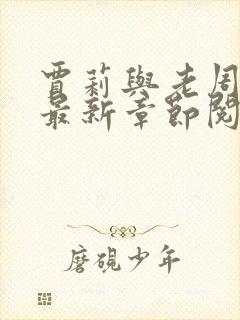 賈莉與老周
最新章節閱
磨硯少年